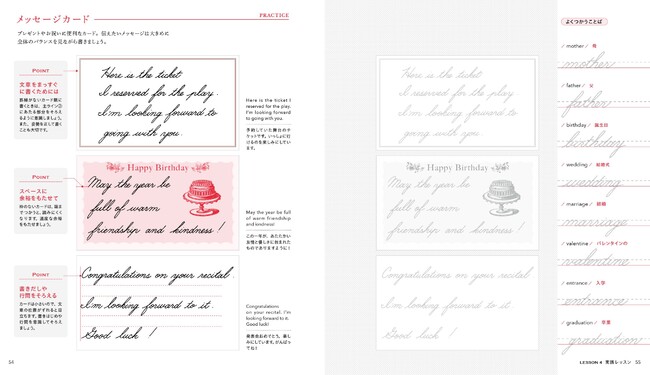 メッセージカード
PRACTICE
プレゼントやお祝いに便利なカード。伝えたいメッセージは大きめに
全体のバランスを見ながら書きましょう。
POINT
文章をまっすぐに
書くためには
罫線がないカード類に
書くときは、主ライン③
にあたる部分をそろえる
ように意識しましょう。ま
た、姿勢を正して書く
ことも大切です。
Here is the ticket
I reserved for the play.
I'm looking forward to
going with you.
Here is the ticket I
reserved for the play.
I'm looking forward
to going with you.
予約していた舞台のチ
ケットです。いっしょに行
けるのを楽しみにしていま
す。
POINT
スペースに
余裕をもたせて
枠のないカードは、端ま
でつかうと、読みにくく
なります。適度な余裕
をもたせましょう。
Happy Birthday
May the year be
full of warm
friendship and kindness!
May the year be full
of warm friendship
and kindness!
この一年が、あたたかい
友情と優しさに包まれた
ものでありますように！
POINT
書きだしや
行間をそろえる
カードは小さいので、文
章の位置がずれると目
立ちます。書きはじめや
行間を意識してそろえ
ましょう。
Congratulations on your recital
I'm looking forward to it.
Good luck!
Congratulations
on your recital. I'm
looking forward to it.
Good luck!
発表会おめでとう。楽し
みにしています。がんばっ
てね！
54
Here is the ticket
I reserved for the play.
I'm looking forward to
going with you.
Happy Birthday
May the year be
full of warm
friendship and kindness!
Congratulations on your recital
I'm looking forward to it.
Good luck!
よくつかうことば
mother / 母
mother
father / 父
father
birthday / 誕生日
birthday
wedding / 結婚式
wedding
marriage / 結婚
marriage
valentine / バレンタインの
valentine
entrance / 入学
entrance
graduation / 卒業
graduation
LESSON 4 実践レッスン 55